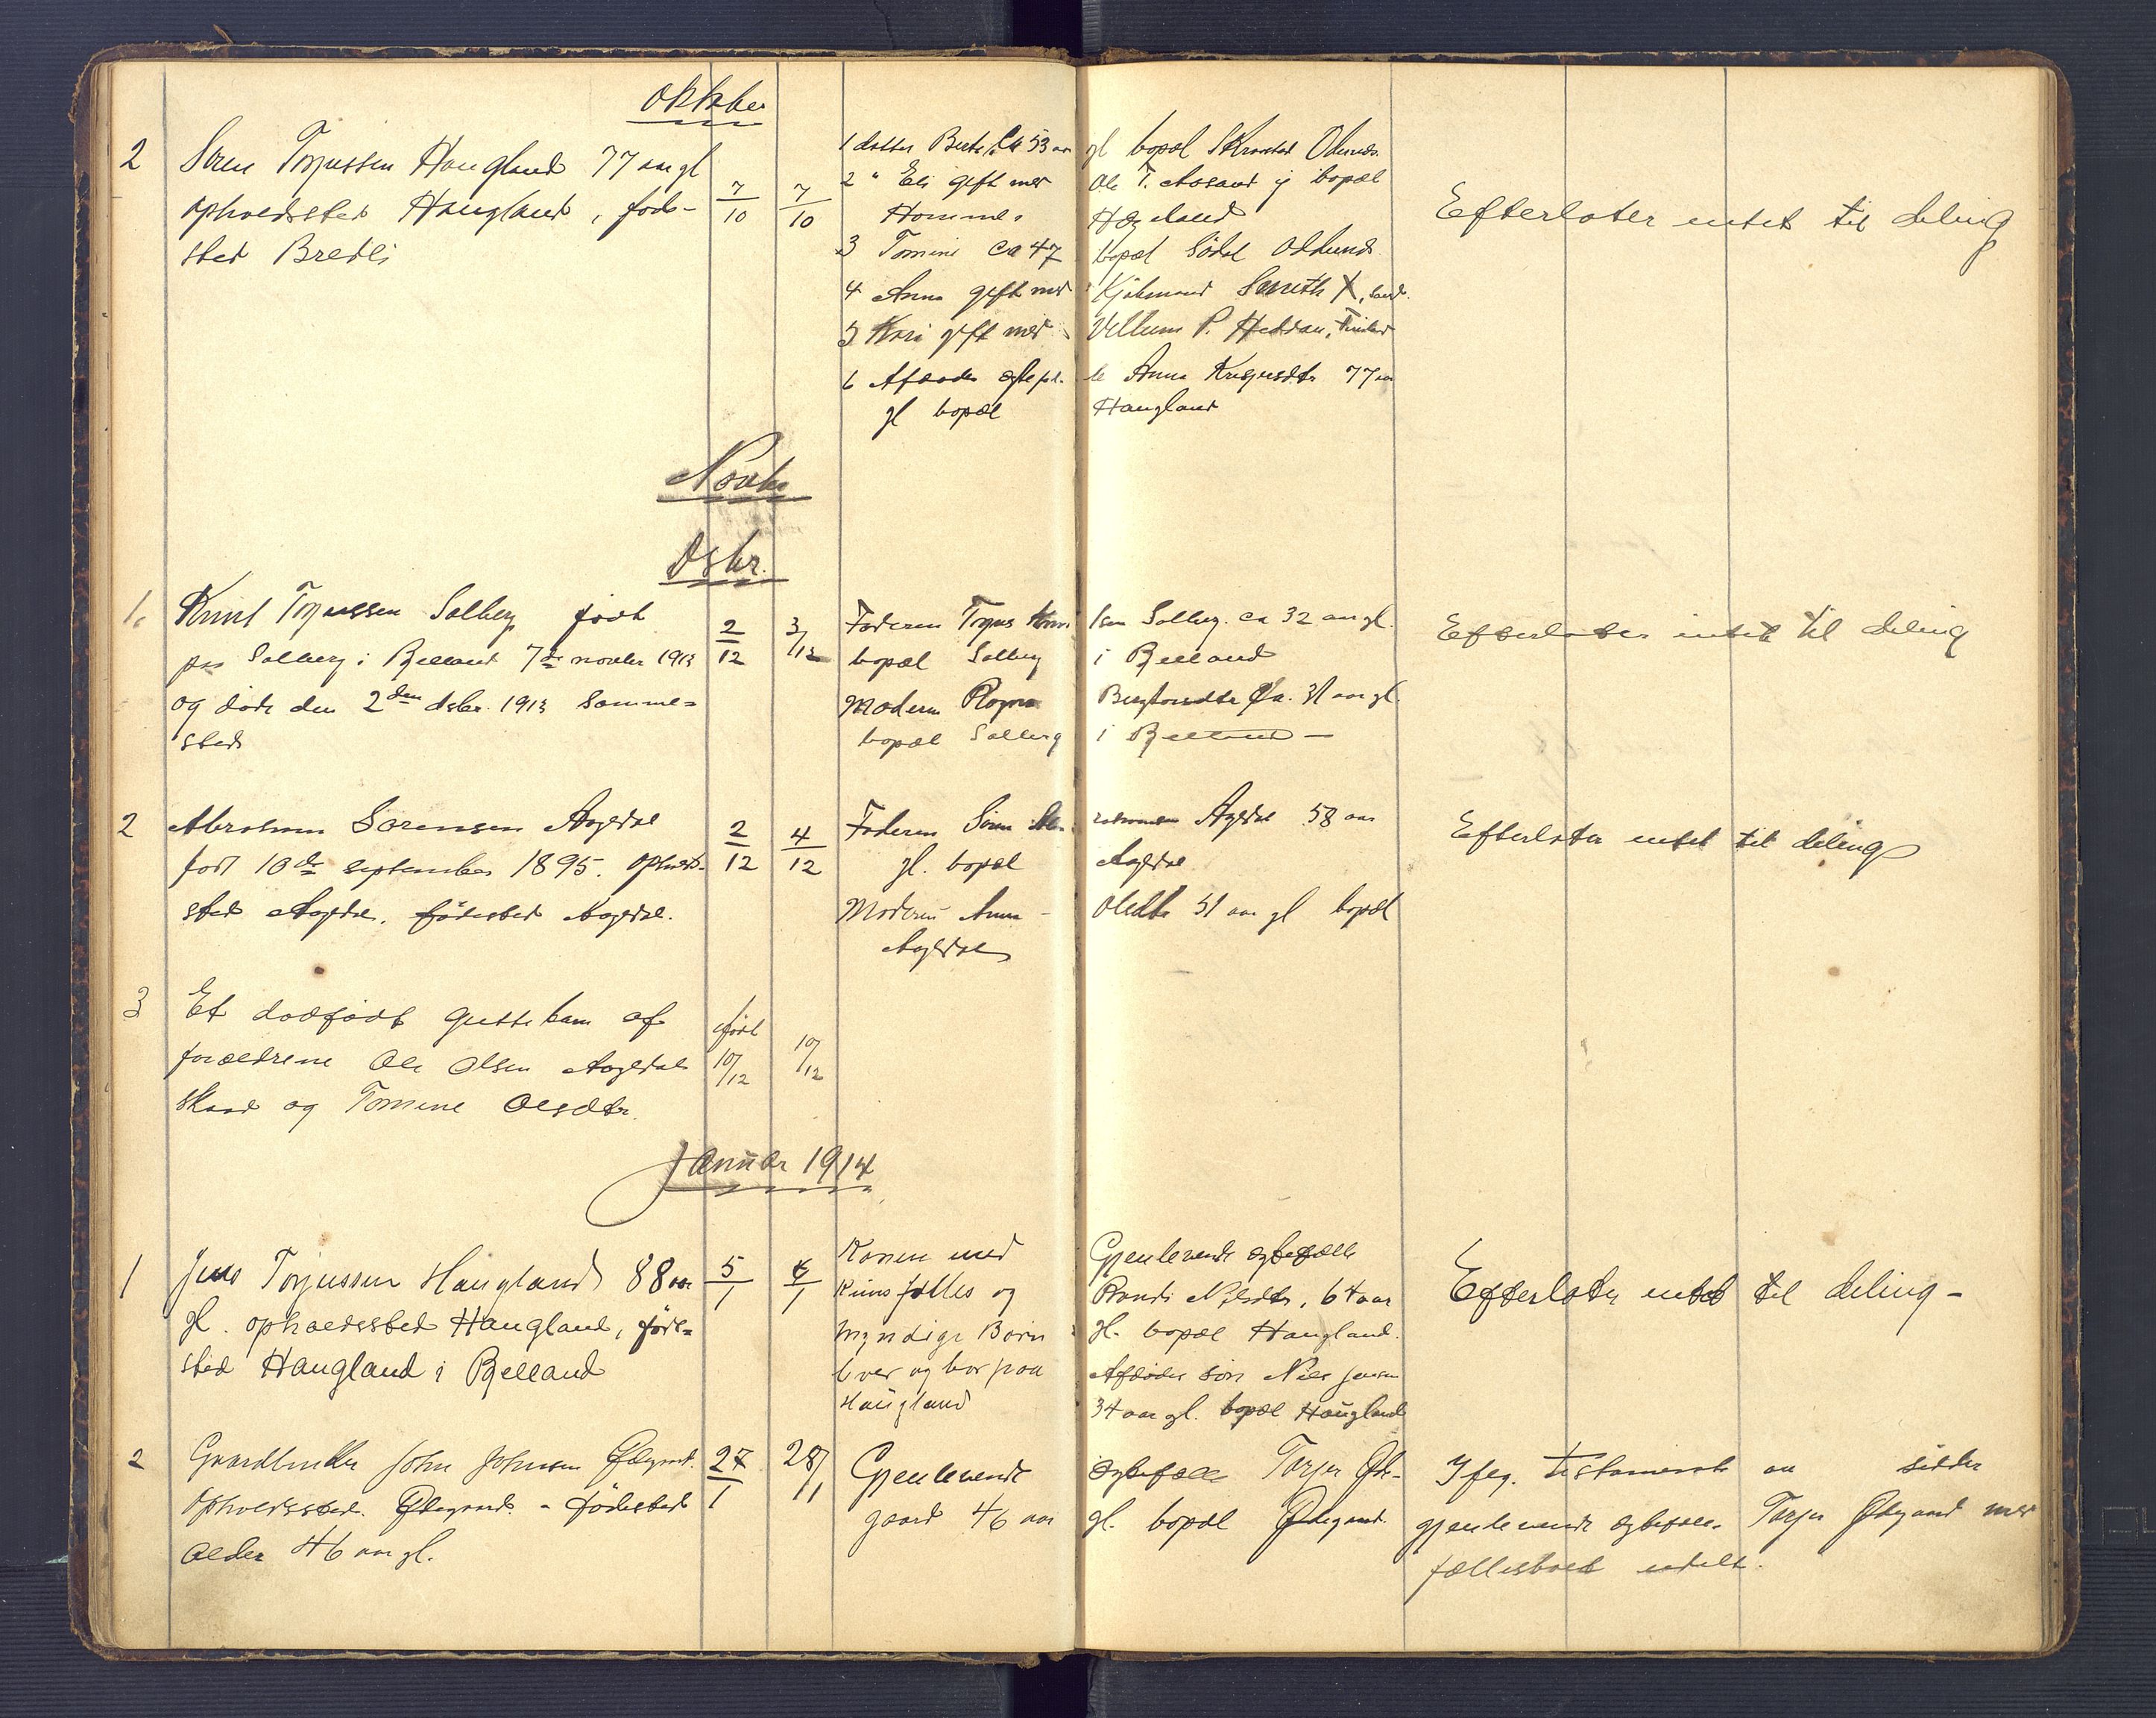 Oktober
2 Søren Torjussen Haugland 77 aar gl
opholdssted Haugland, føde-
sted Bredli
7/10 7/10
1 datter Berte, Ca 53 aar gl bopæl Skrøvstad
2 " Eli gift med Ole T. Aasand bopæl
Homme
3 Tomine ca 47 bopæl Sødal
4 Anna gift med Kjøbmand
5 Kari gift med Villum P. Heddan,
6 Afdødes ægtefæl- le Anna 77 aar
gl bopæl Haugland
Efterlater intet til deling
Novbr
Dsbr.
1. Knut Torjussen Solberg født
paa Solberg i Bjelland 7de novbr 1913
og døde den 2den dsbr. 1913 samme-
sted
2/12 3/12
Faderen Torjus Knut sen Solberg. ca 32 aar gl.
bopæl Solberg i Bjelland
Moderen Ragna Bergtorsdtr Ca. 31 aar gl.
bopæl Solberg i Bjelland —
Efterlater intet til deling
2 Abraham Sørensen Aagedal
født 10de september 1895. opholds-
sted Aagedal. fødested Aagedal.
2/12 4/12
Faderen Søren Ab- rahamsen Agedal 58 aar
gl. bopæl Aagedal
Moderen Anna Olsdtr 51 aar gl bopæl
Aagedal
Efterlater intet til deling
3 Et dødfødt guttebarn af
forældrene Ole Olsen Aagedal
skaar og Tomine Olsdtr.
født
10/12 10/12
Januar 1914
1 Jens Torjussen Haugland 88 aar
gl. opholdssted Haugland, føde-
sted Haugland i Bjelland
5/1 6/1
Konen med
fælles og
myndige Børn
lever og bor paa
Haugland
Gjenlevende ægtefælle
Randi Nilsdtr, 64 aar
gl. bopæl Haugland.
Afdødes søn Nils Jensen
34 aar gl. bopæl Haugland
Efterlater intet til deling -
2 Gaardbruker John Johnsen Ødegaard.
opholdssted. Ødegaard - fødested
Alder 46 aar gl.
27/1 28/1
Gjenlevende ægtefælle Torjer Øde-
gaard 46 aar gl. bopæl Ødegaard.
Ifølg. testamente sidder
gjenlevende ægtefælle Torjer Ødegaard med
fællesboet udelt.